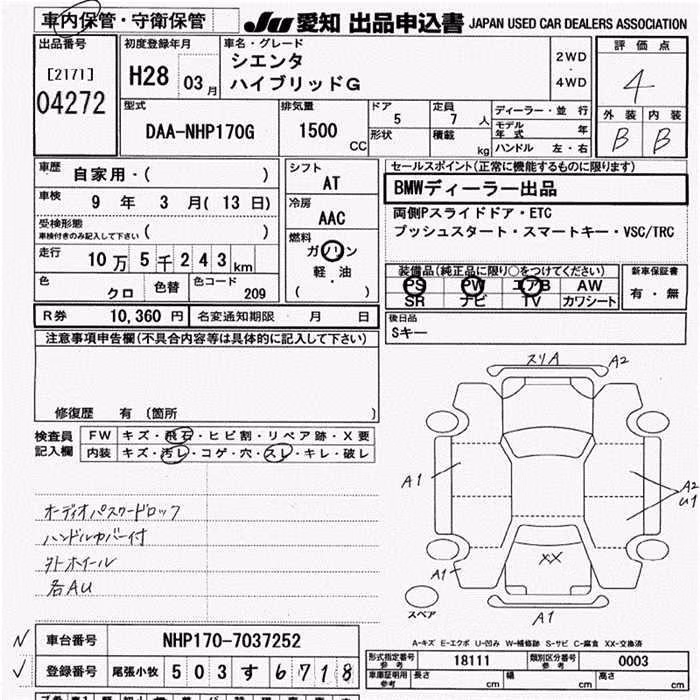 車内保管・守衛保管
JU 愛知 出品申込書 JAPAN USED CAR DEALERS ASSOCIATION
出品番号
[2171]
04272
初度登録年月
H28 03月
車名・グレード
シエンタ
ハイブリッドG
2WD
・
4WD
評価点
4
外装 内装
B B
型式
DAA-NHP170G
排気量
1500 CC
ドア 5
形状
定員 7 人
積載 kg
ディーラー・並行
モデル年式 年
ハンドル 左・右
車歴 自家用・( )
車検 9 年 3 月( 13 日)
受検形態
車検付きのみ記入して下さい ( )
走行 10 万 5 千 2 4 3 km
色 クロ 色替 色コード 209
シフト
AT
冷房
AAC
燃料
ガソリン
軽・油
( )
セールスポイント(正常に機能するものに限ります)
BMWディーラー出品
両側Pスライドドア・ETC
プッシュスタート・スマートキー・VSC/TRC
装備品(純正品に限り○をつけてください)
PS PW エアB AW
SR ナビ TV カワシート
新車保証書
有・無
R券 10,360 円 名変通知期限 月 日
後日品
Sキー
注意事項申告欄(不具合内容等は具体的に記入して下さい)
修復歴 有 (箇所 )
検査員
記入欄
FW キズ・飛石・ヒビ割・リペア跡・X要
内装 キズ・汚レ・コゲ・穴・スレ・キレ・破レ
オーディオパスワードロック
ハンドルカバー付
外ホイール
各AU
スリA A2
A1
A2
U1
XX
A1
スペア
A1
A-キズ E-エクボ U-凹み W-補修跡 S-サビ C-腐食 XX-交換済
車台番号 NHP170-7037252
登録番号 尾張小牧 5 0 3 す 6 7 1 8
形式指定番号
参考
18111
類別区分番号
参考
0003
車庫証明用
参考
長さ cm 幅 cm 高さ cm